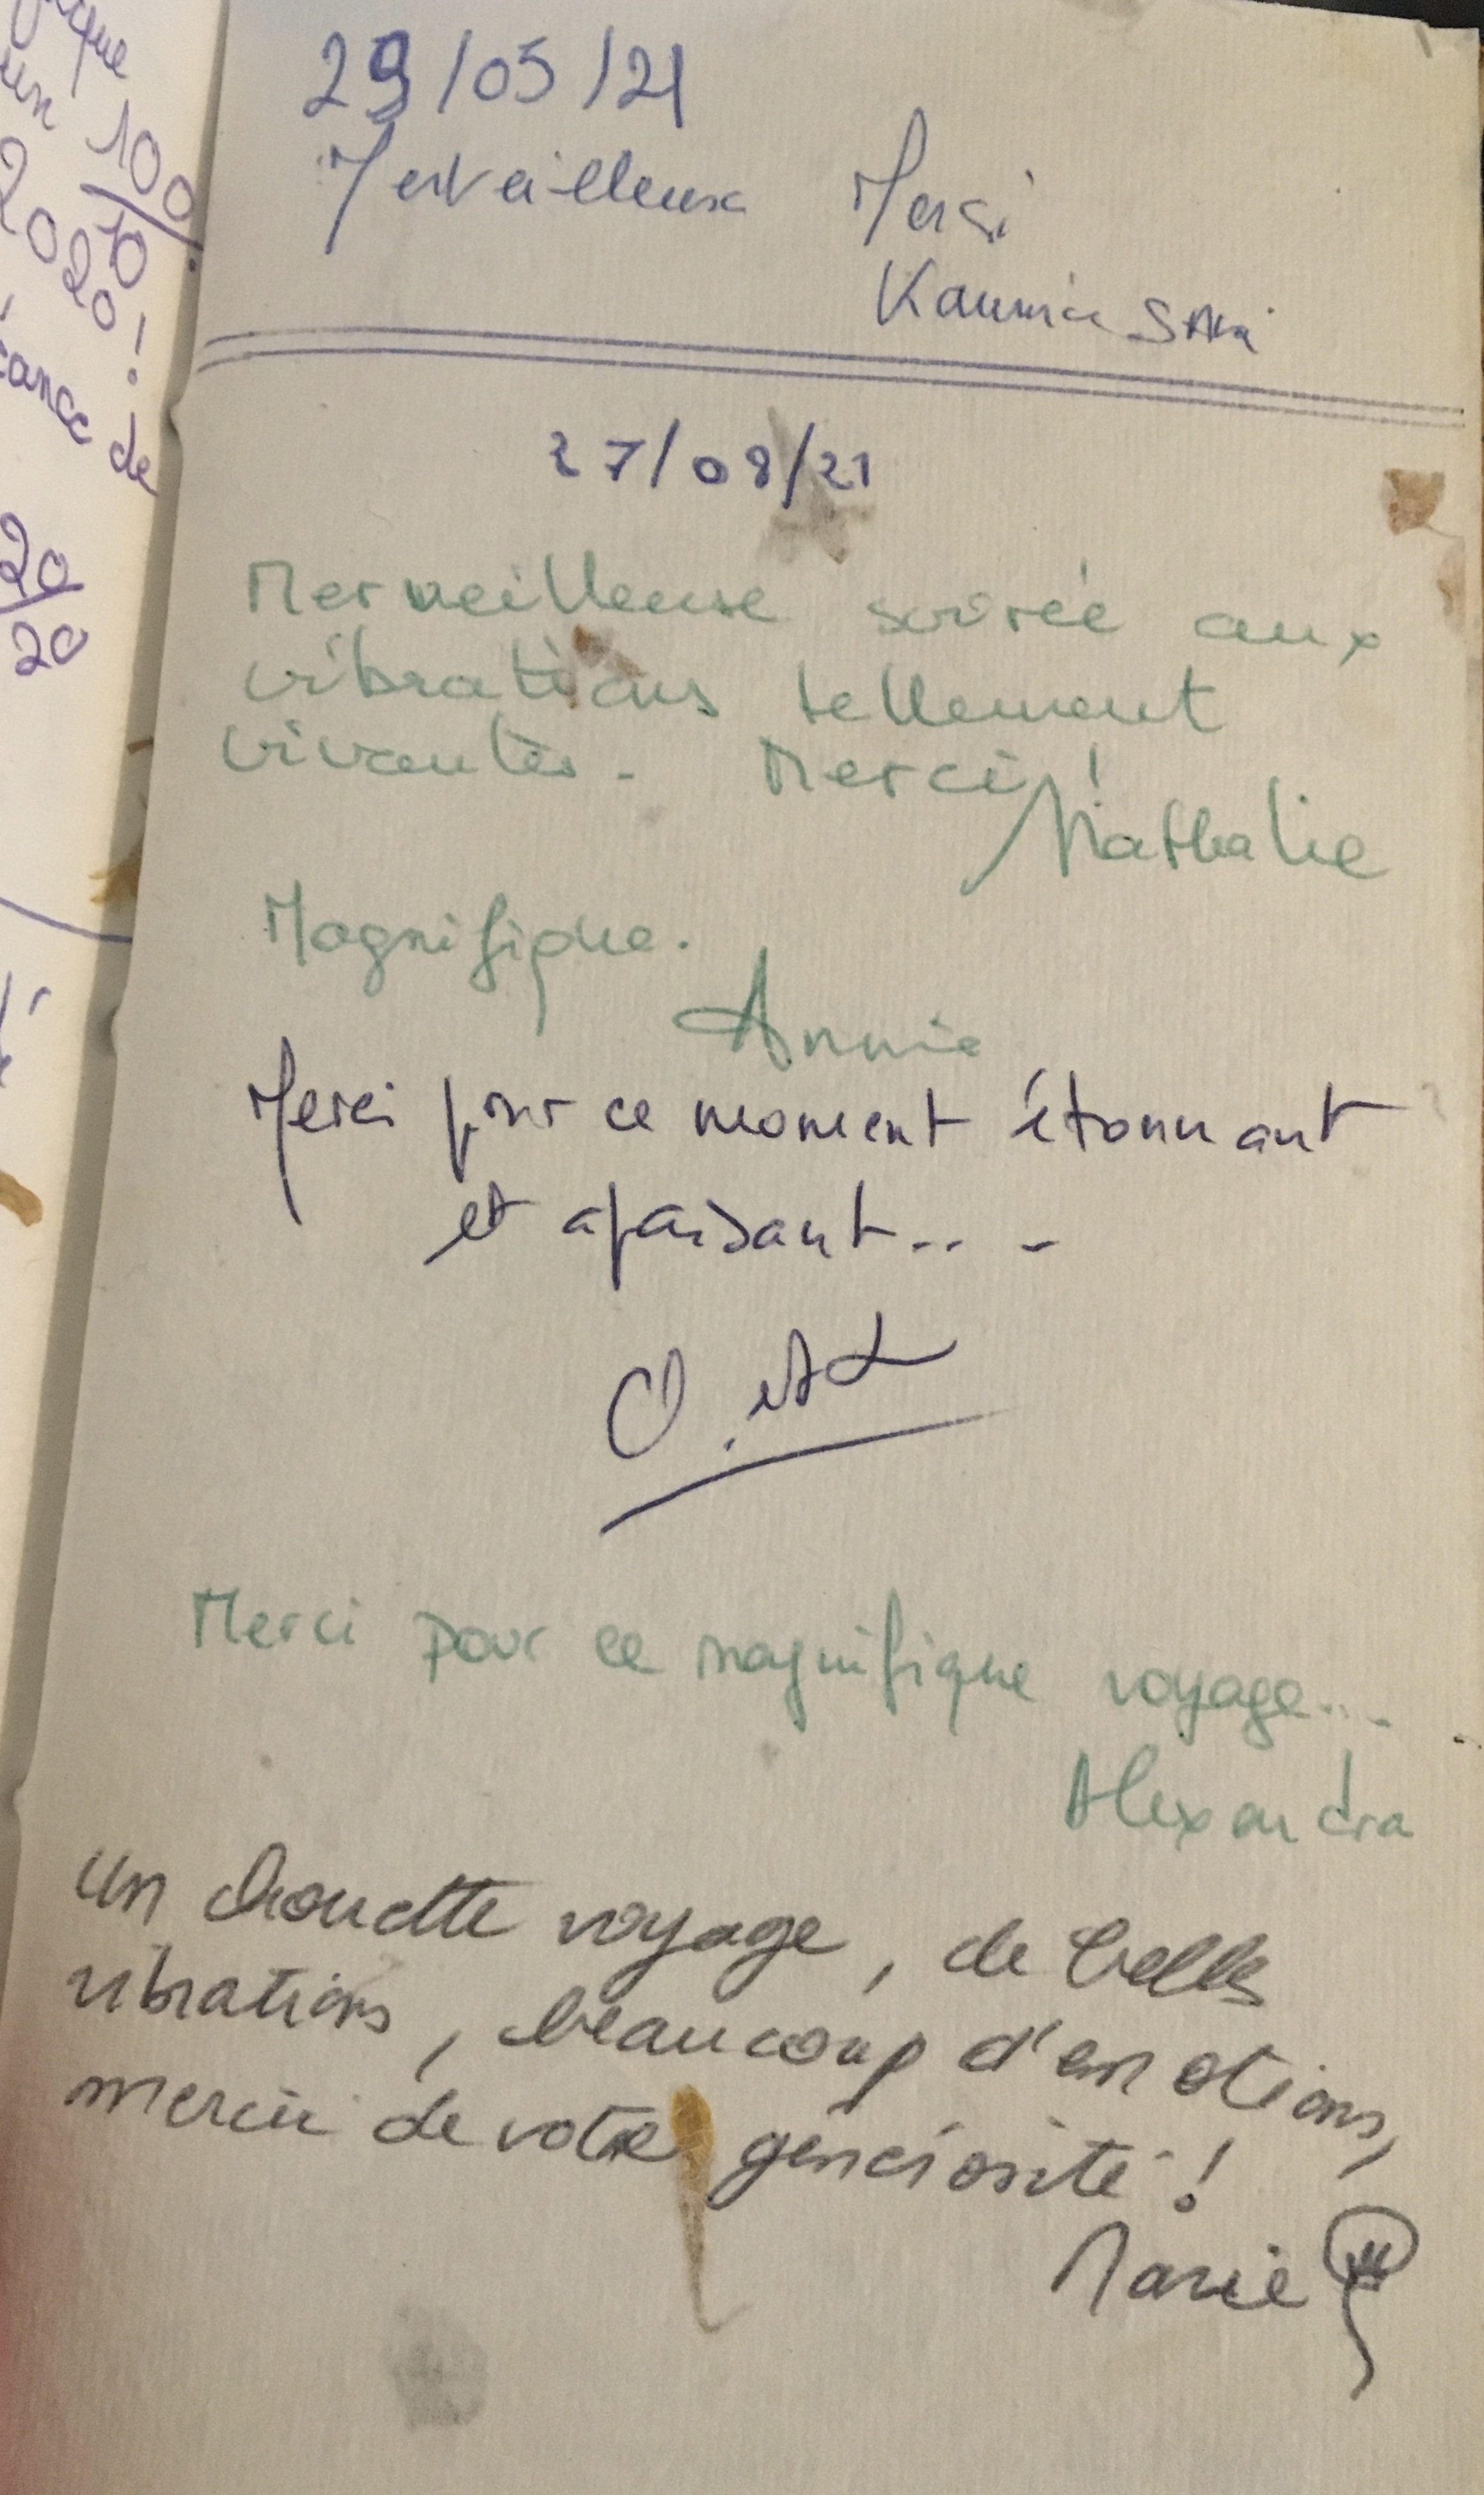 ique
un 100
10
2020!
cance de
20
20
29/05/21
Merveilleux Merci
27/08/21
Merveilleuse soirée aux
vibrations tellement
vivantes. Merci!
Nathalie
Magnifique.
Annie
Merci pour ce moment étonnant
et apaisant...
Merci pour ce magnifique voyage...
Alexandra
Un chouette voyage, de belles
vibrations, beaucoup d'émotions,
merci de votre générosité!
Marie